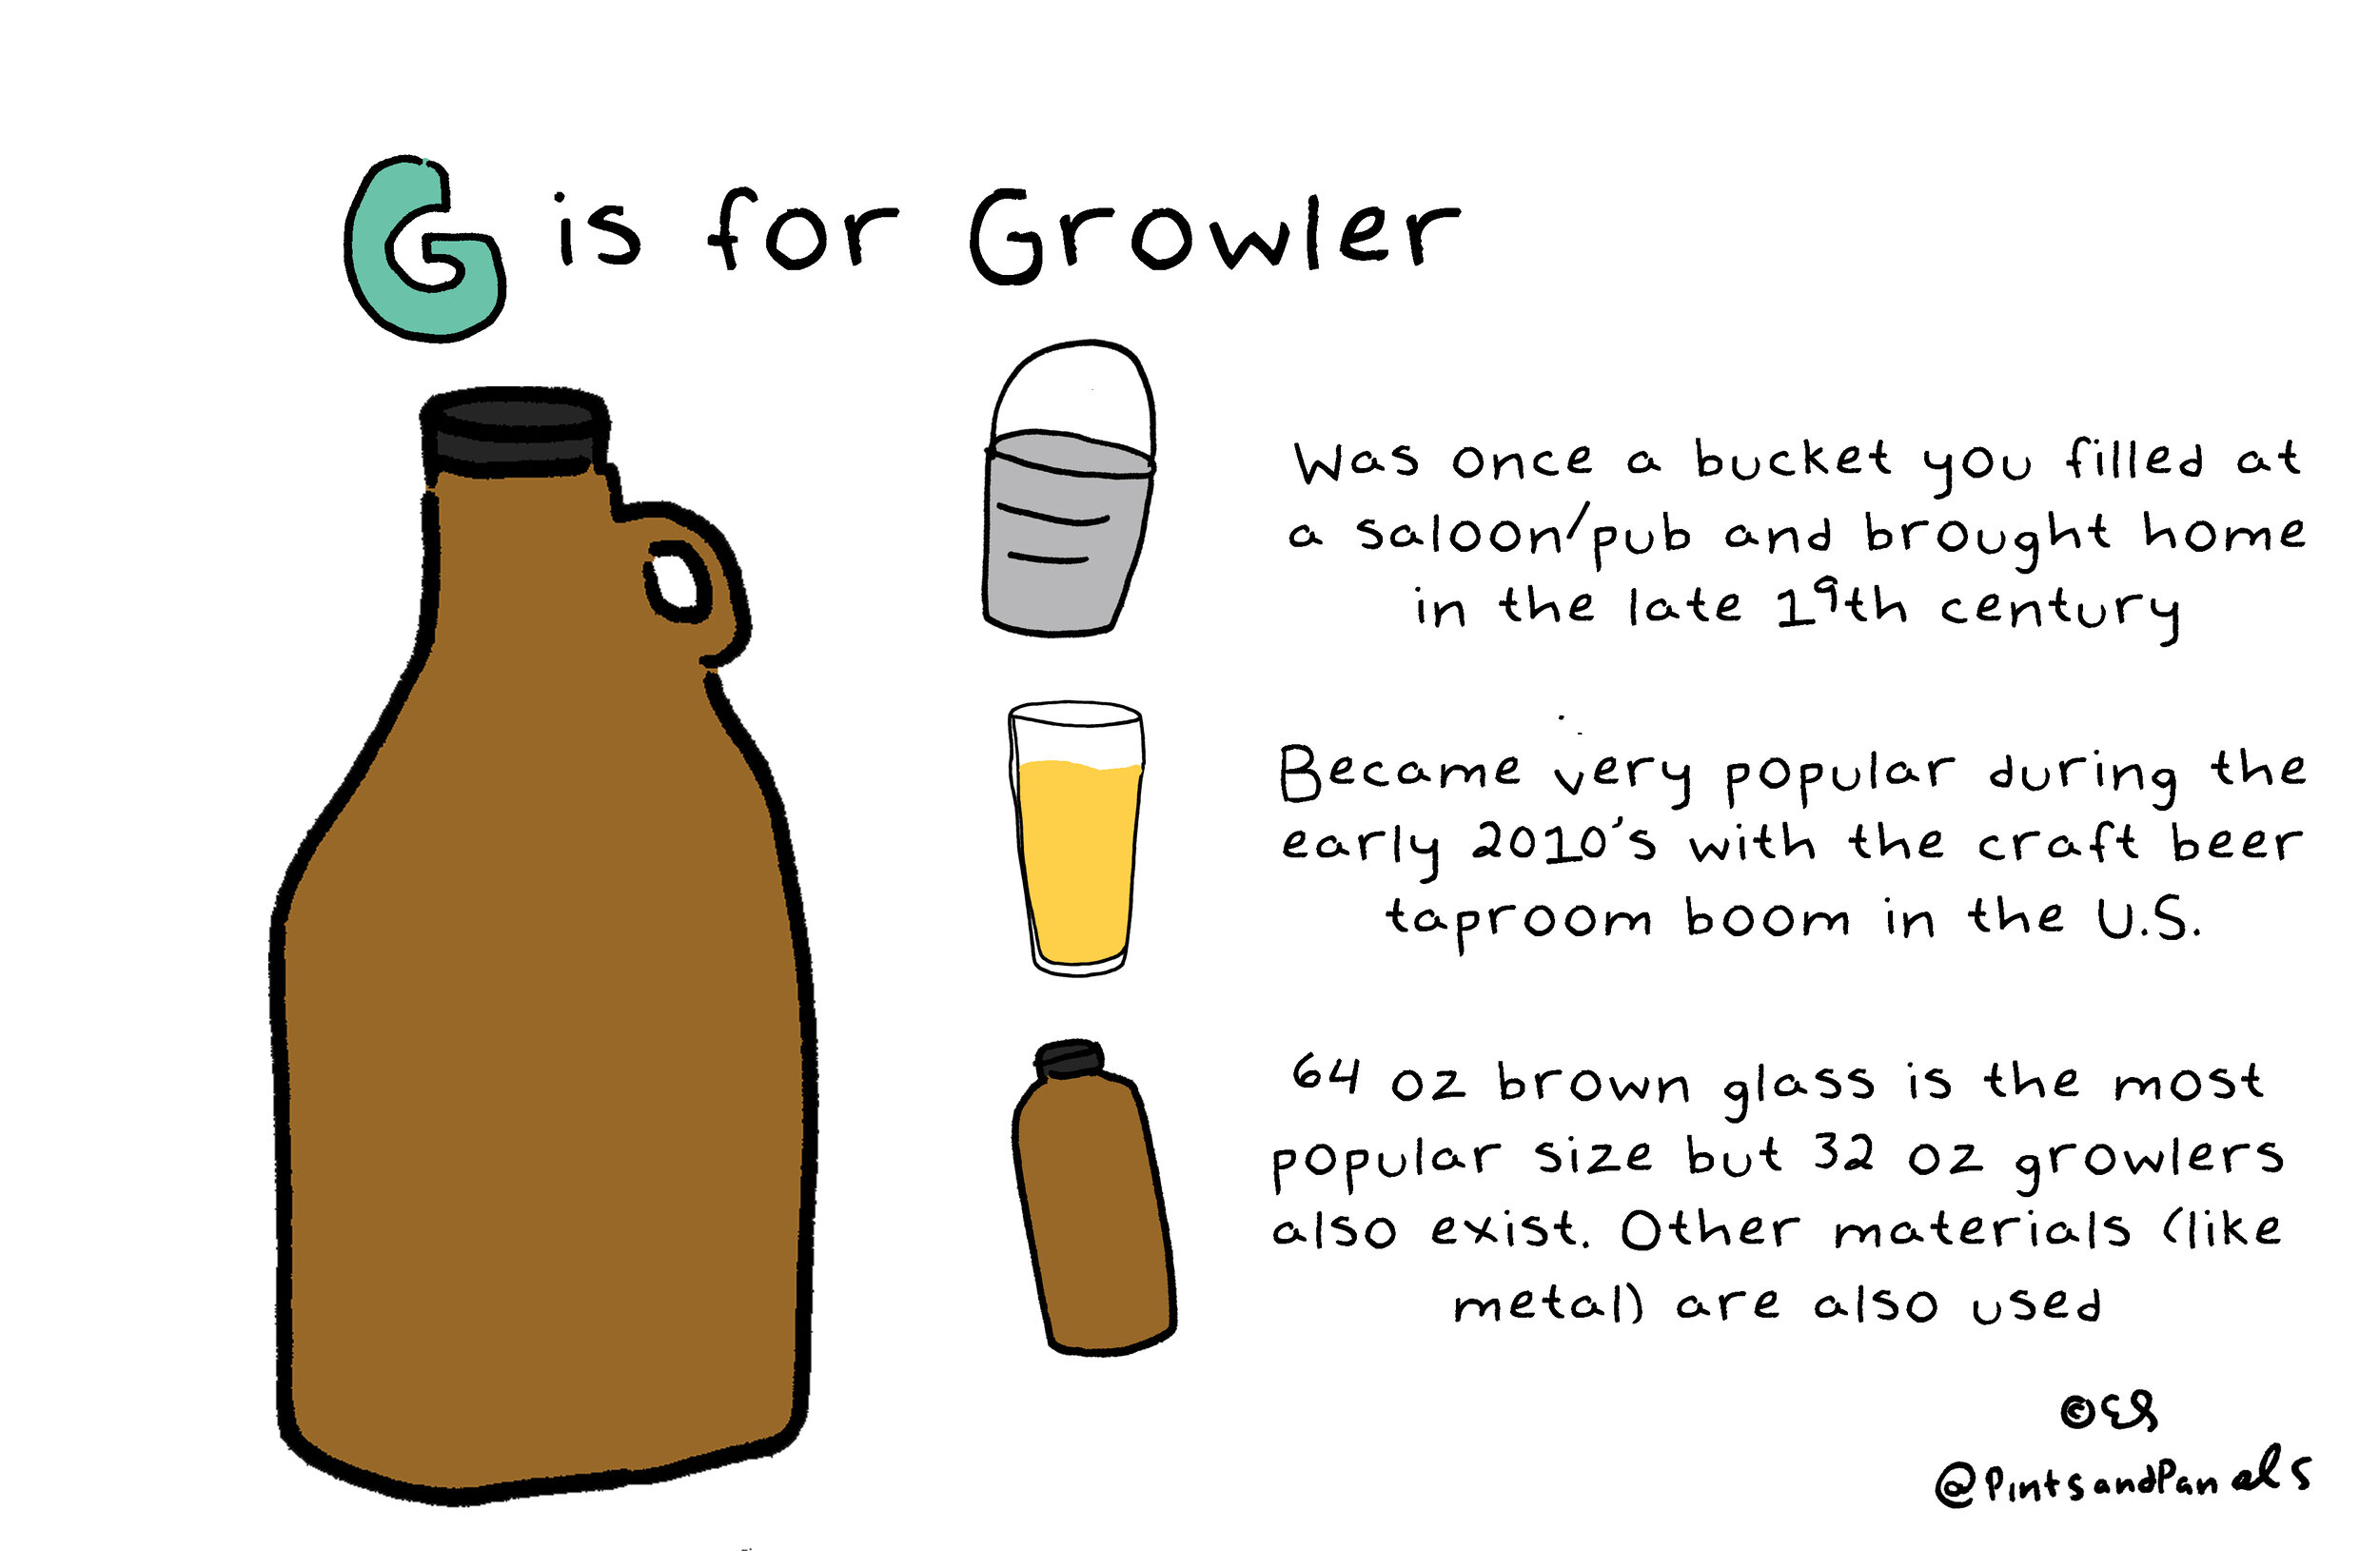 G is for Growler
Was once a bucket you filled at
a saloon/pub and brought home
in the late 19th century
Became very popular during the
early 2010's with the craft beer
taproom boom in the U.S.
64 oz brown glass is the most
popular size but 32 oz growlers
also exist. Other materials (like
metal) are also used
©ES
@PintsandPanels